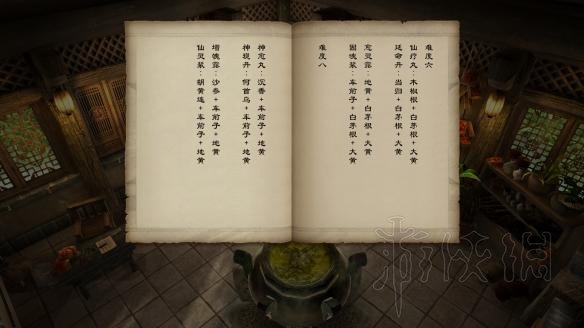 难度六
仙疗丸：木椒根+白茅根+大黄
延命丹：当归+白茅根+大黄
愈灵露：地黄+白茅根+大黄
固魂浆：车前子+白茅根+大黄
难度八
神愈丸：沉香+车前子+地黄
神现丹：何首乌+车前子+地黄
增魂露：沙参+车前子+地黄
仙灵浆：胡黄连+车前子+地黄
游侠网